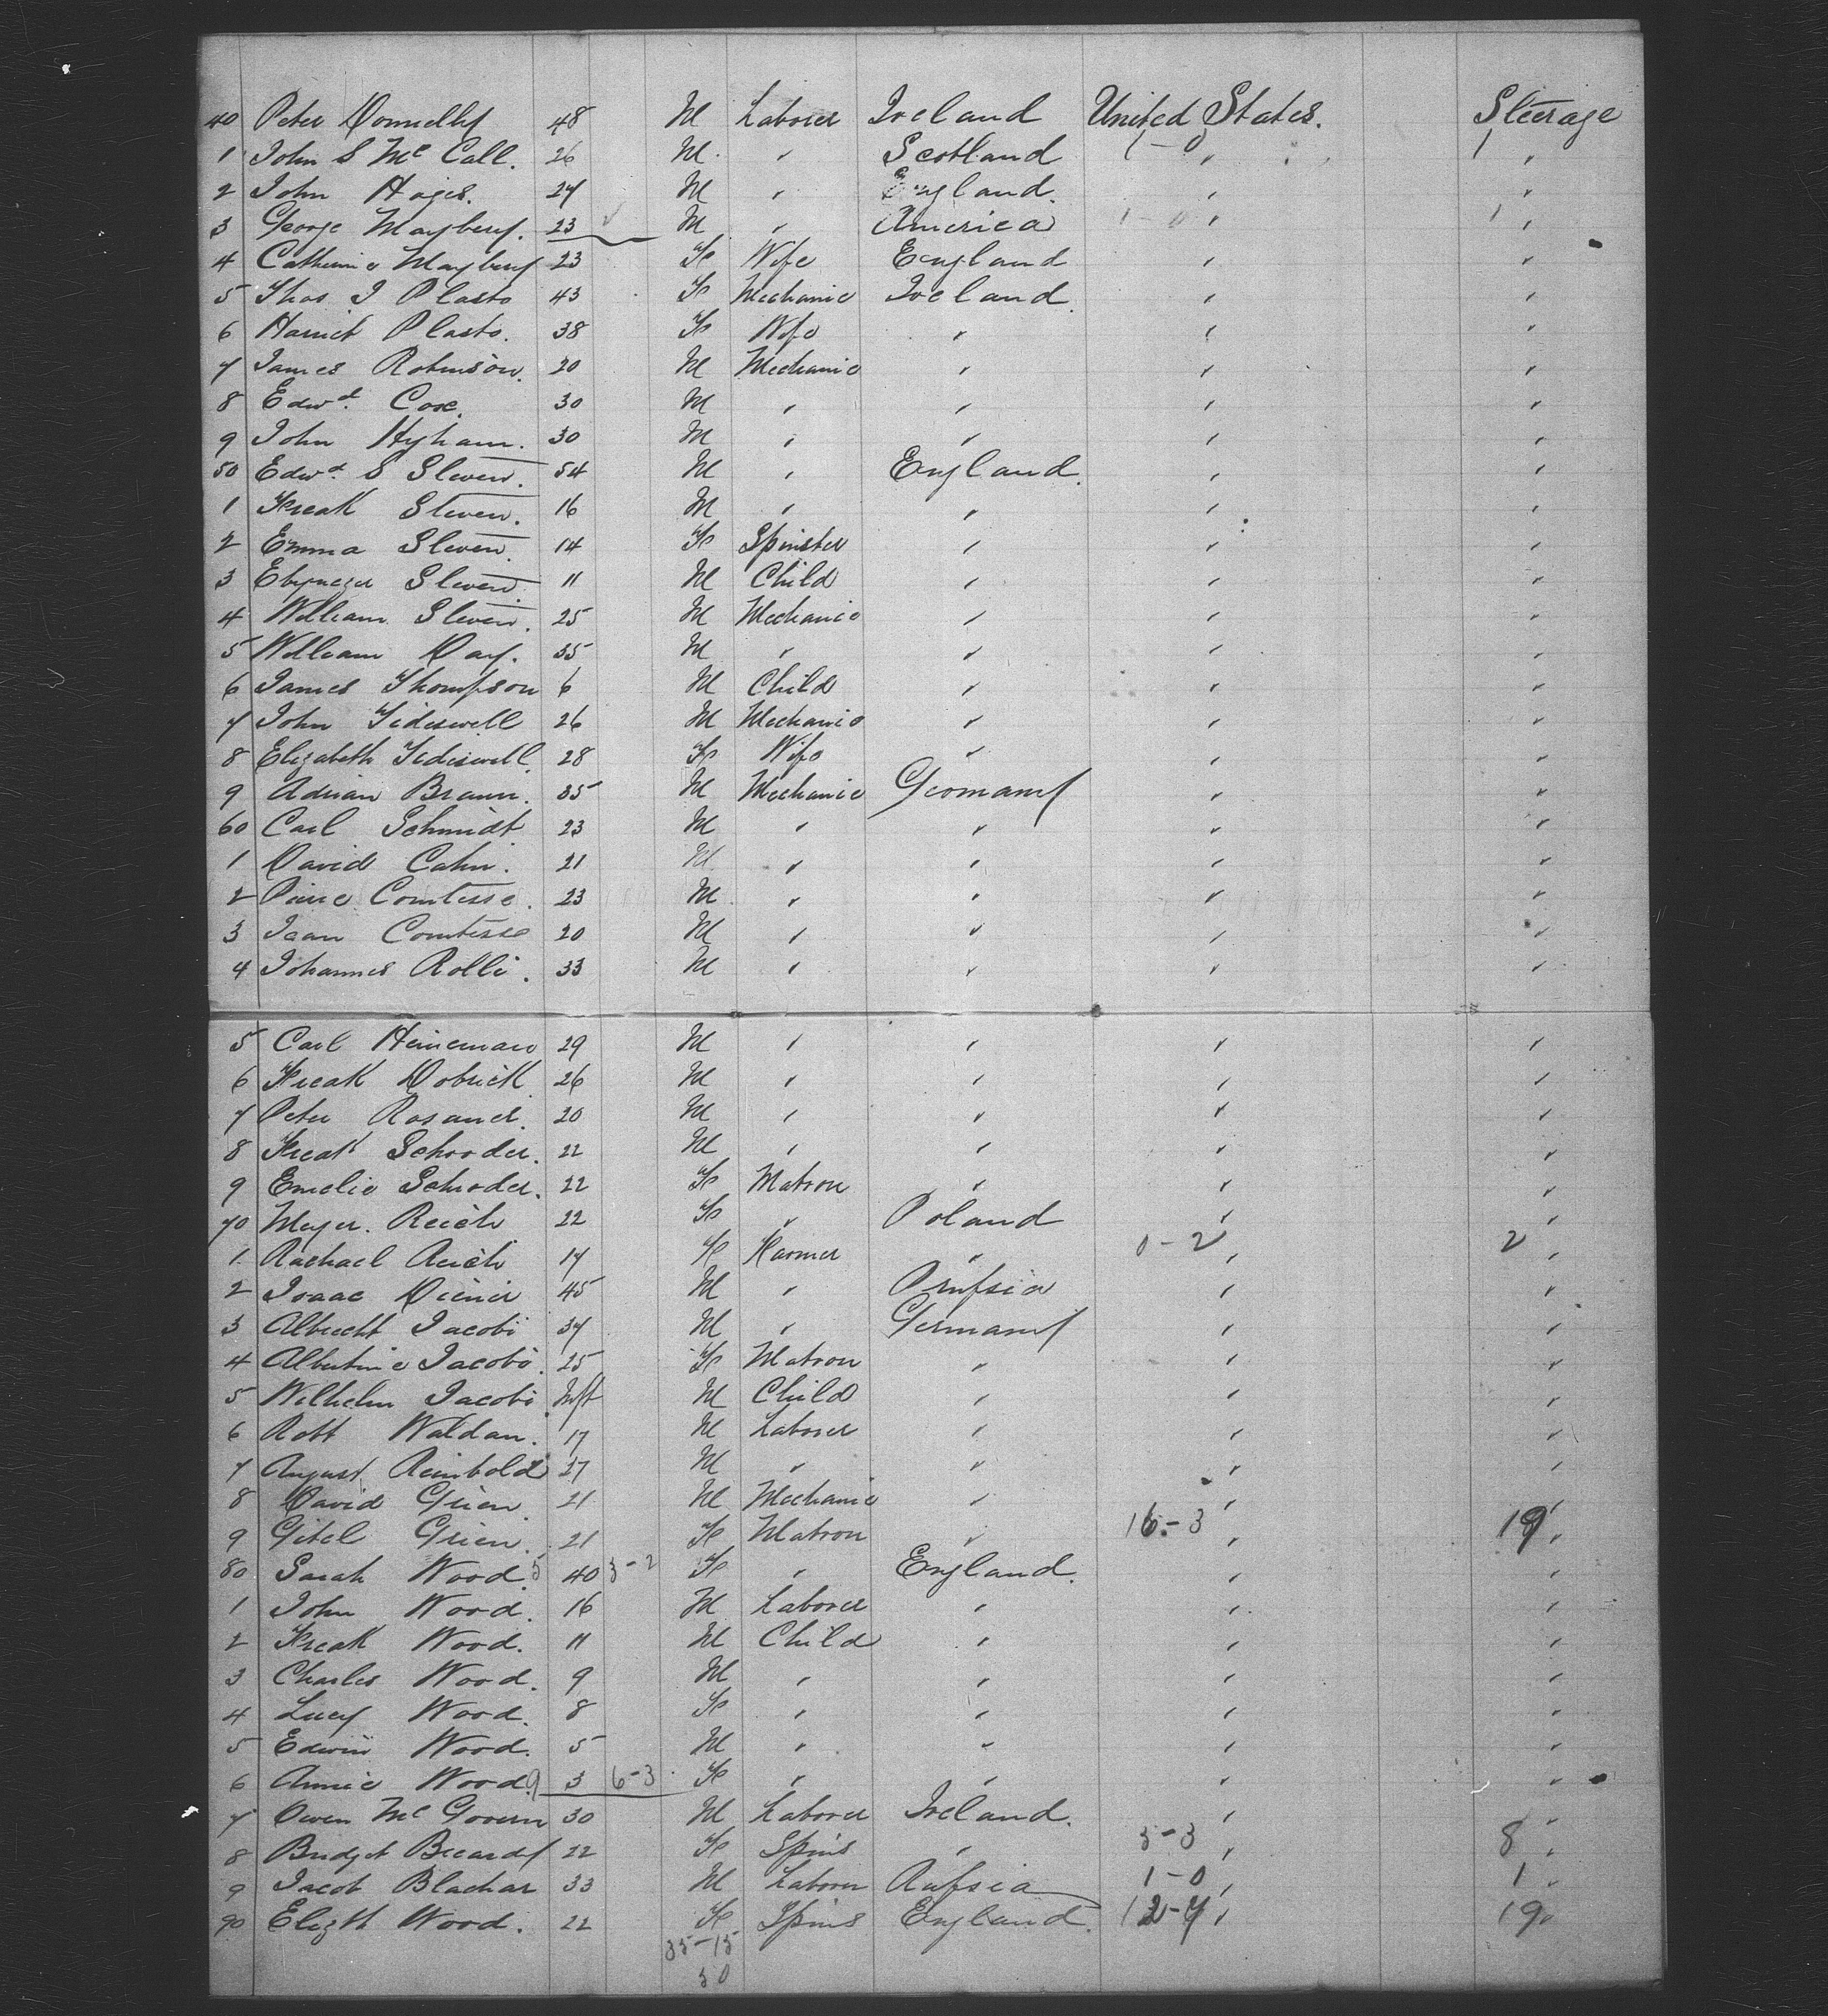 40 Peter Donnelly 48 M Laborer Ireland United States. Steerage
1 John S McCall. 26 M. " Scotland " 1-0 1 "
2 John Hages. 24 M " England. " "
3 George Mayberry. 23 M " America 1-0 " 1 "
4 Catherine Mayberry 23 F Wife England " "
5 Thos J Plasto 43 F Mechanic Ireland " "
6 Harriet Plasto. 38 F Wife " " "
7 James Robinson. 20 M Mechanic " " "
8 Edwd. Cox. 30 M " " " "
9 John Hyham. 30 M " " " "
50 Edwd. S Sleven. 54 M " England. " "
1 Fredk Sleven. 16 M " " " "
2 Emma Sleven. 14 F Spinster " " "
3 Ebynezer Sleven. 11 M Child " " "
4 William Sleven. 25 M Mechanic " " "
5 William Day. 35 M " " " "
6 James Thompson 6 M Child " " "
7 John Tideswell 26 M Mechanic " " "
8 Elizabeth Tideswell. 28 F Wife " " "
9 Adrian Braun. 35 M Mechanic Germany " "
60 Carl Schmidt 23 M " " " "
1 David Cahn. 21 M " " " "
2 Pierre Comtesse. 23 M " " " "
3 Jean Comtesse 20 M " " " "
4 Johannes Rolli. 33 M " " " "
5 Carl Heineman 29 M " " " "
6 Fredk Dobrick 26 M " " " "
7 Peter Rosand. 20 M " " " "
8 Fredk Schroder. 22 M " " " "
9 Emelie Schroder. 22 F Matron " " "
70 Meyer. Reich 22 F " Poland " "
1. Rachael Reich 17 F Farmer " 0-2 " 2 "
2 Isaac Diener 45 M " Prussia " "
3 Albrecht Jacobi 34 M " Germany " "
4 Albertine Jacobi. 25 F Matron " " "
5 Wilhelm Jacobi. Inft M Child " " "
6 Robt Waldan. 17 M Laborer " " "
7 August Reinbold 27 M " " " "
8 David Grien 21 M Mechanic " " "
9 Gitel Grien. 21 F Matron " 16-3 " 19 "
80 Sarah Wood. 5 40 3-2 F " England. " "
1 John Wood. 16 M Laborer " " "
2 Fredk Wood. 11 M Child " " "
3 Charles Wood. 9 M " " " "
4 Lucy Wood. 8 F " " " "
5 Edwin Wood. 5 M " " " "
6 Annie Wood. 9 3 6-3 F " " " "
7 Owen McGovern 30 M Laborer Ireland. " "
8 Bridget 22 F Spins " 5-3 " 8 "
9 Jacob Blachar 33 M Laborer Russia 1-0 " 1 "
90 Elizth Wood. 22 F Spins England. 12-7 " 19 "
35-15
50